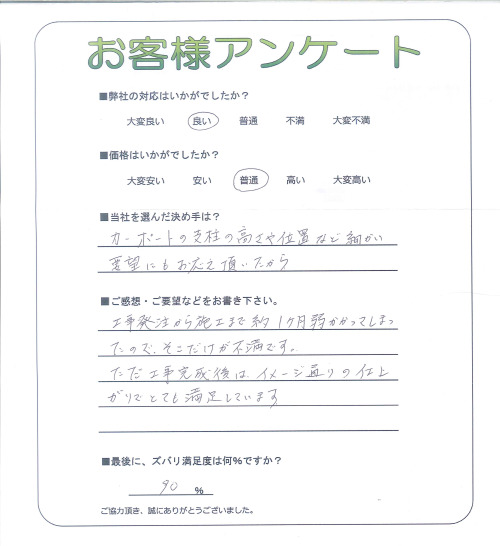 お客様アンケート
■弊社の対応はいかがでしたか？
大変良い 良い 普通 不満 大変不満
■価格はいかがでしたか？
大変安い 安い 普通 高い 大変高い
■当社を選んだ決め手は？
カーポートの支柱の高さや位置など細かい
要望にもお応え頂いたから
■ご感想・ご要望などをお書き下さい。
工事発注から施工まで約1ヶ月弱かかってしまっ
たので、そこだけが不満です。
ただ工事完成後は、イメージ通りの仕上
がりでとても満足しています
■最後に、ズバリ満足度は何%ですか？
90 %
ご協力頂き、誠にありがとうございました。